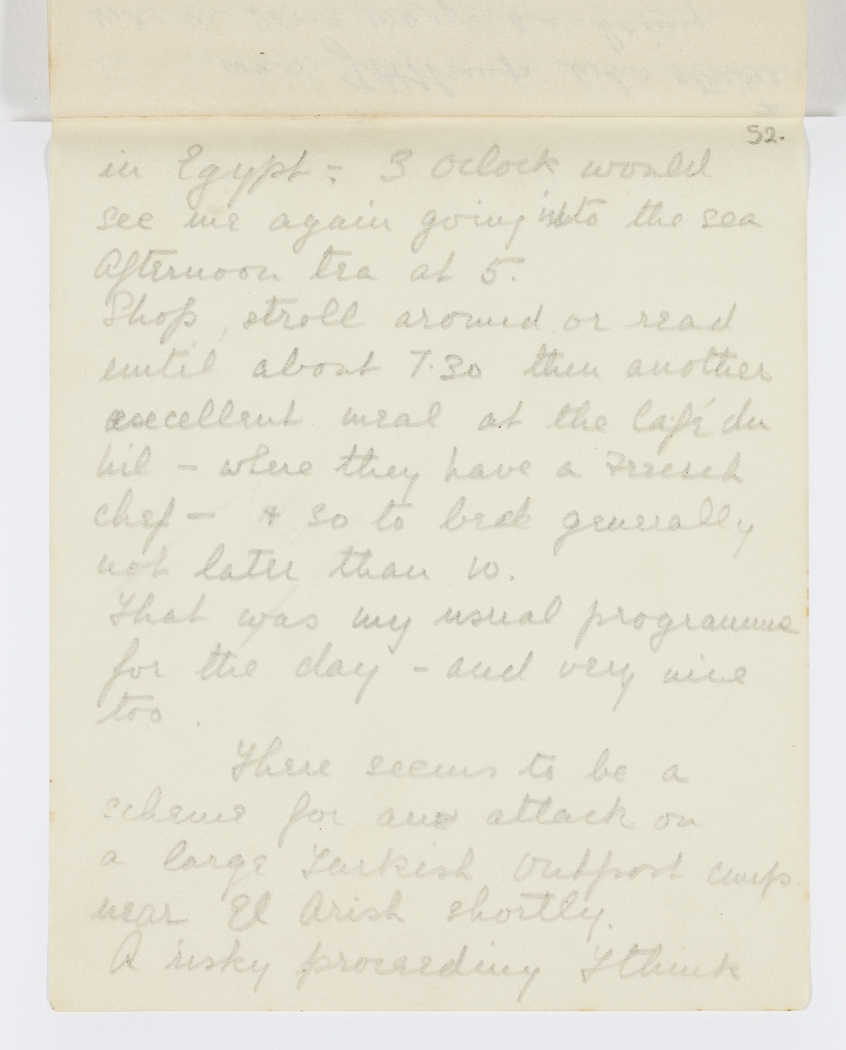 52.
in Egypt - 3 Oclock would
see me again going into the sea
Afternoon tea at 5.
Shop, stroll around or read
until about 7.30 then another
excellent meal at the Café du
Nil - where they have a French
chef - & so to bed generally
not later than 10.
That was my usual programme
for the day - and very nice
too.
There seems to be a
scheme for an attack on
a large Turkish Outpost camp
near El Arish shortly.
A risky proceeding I think